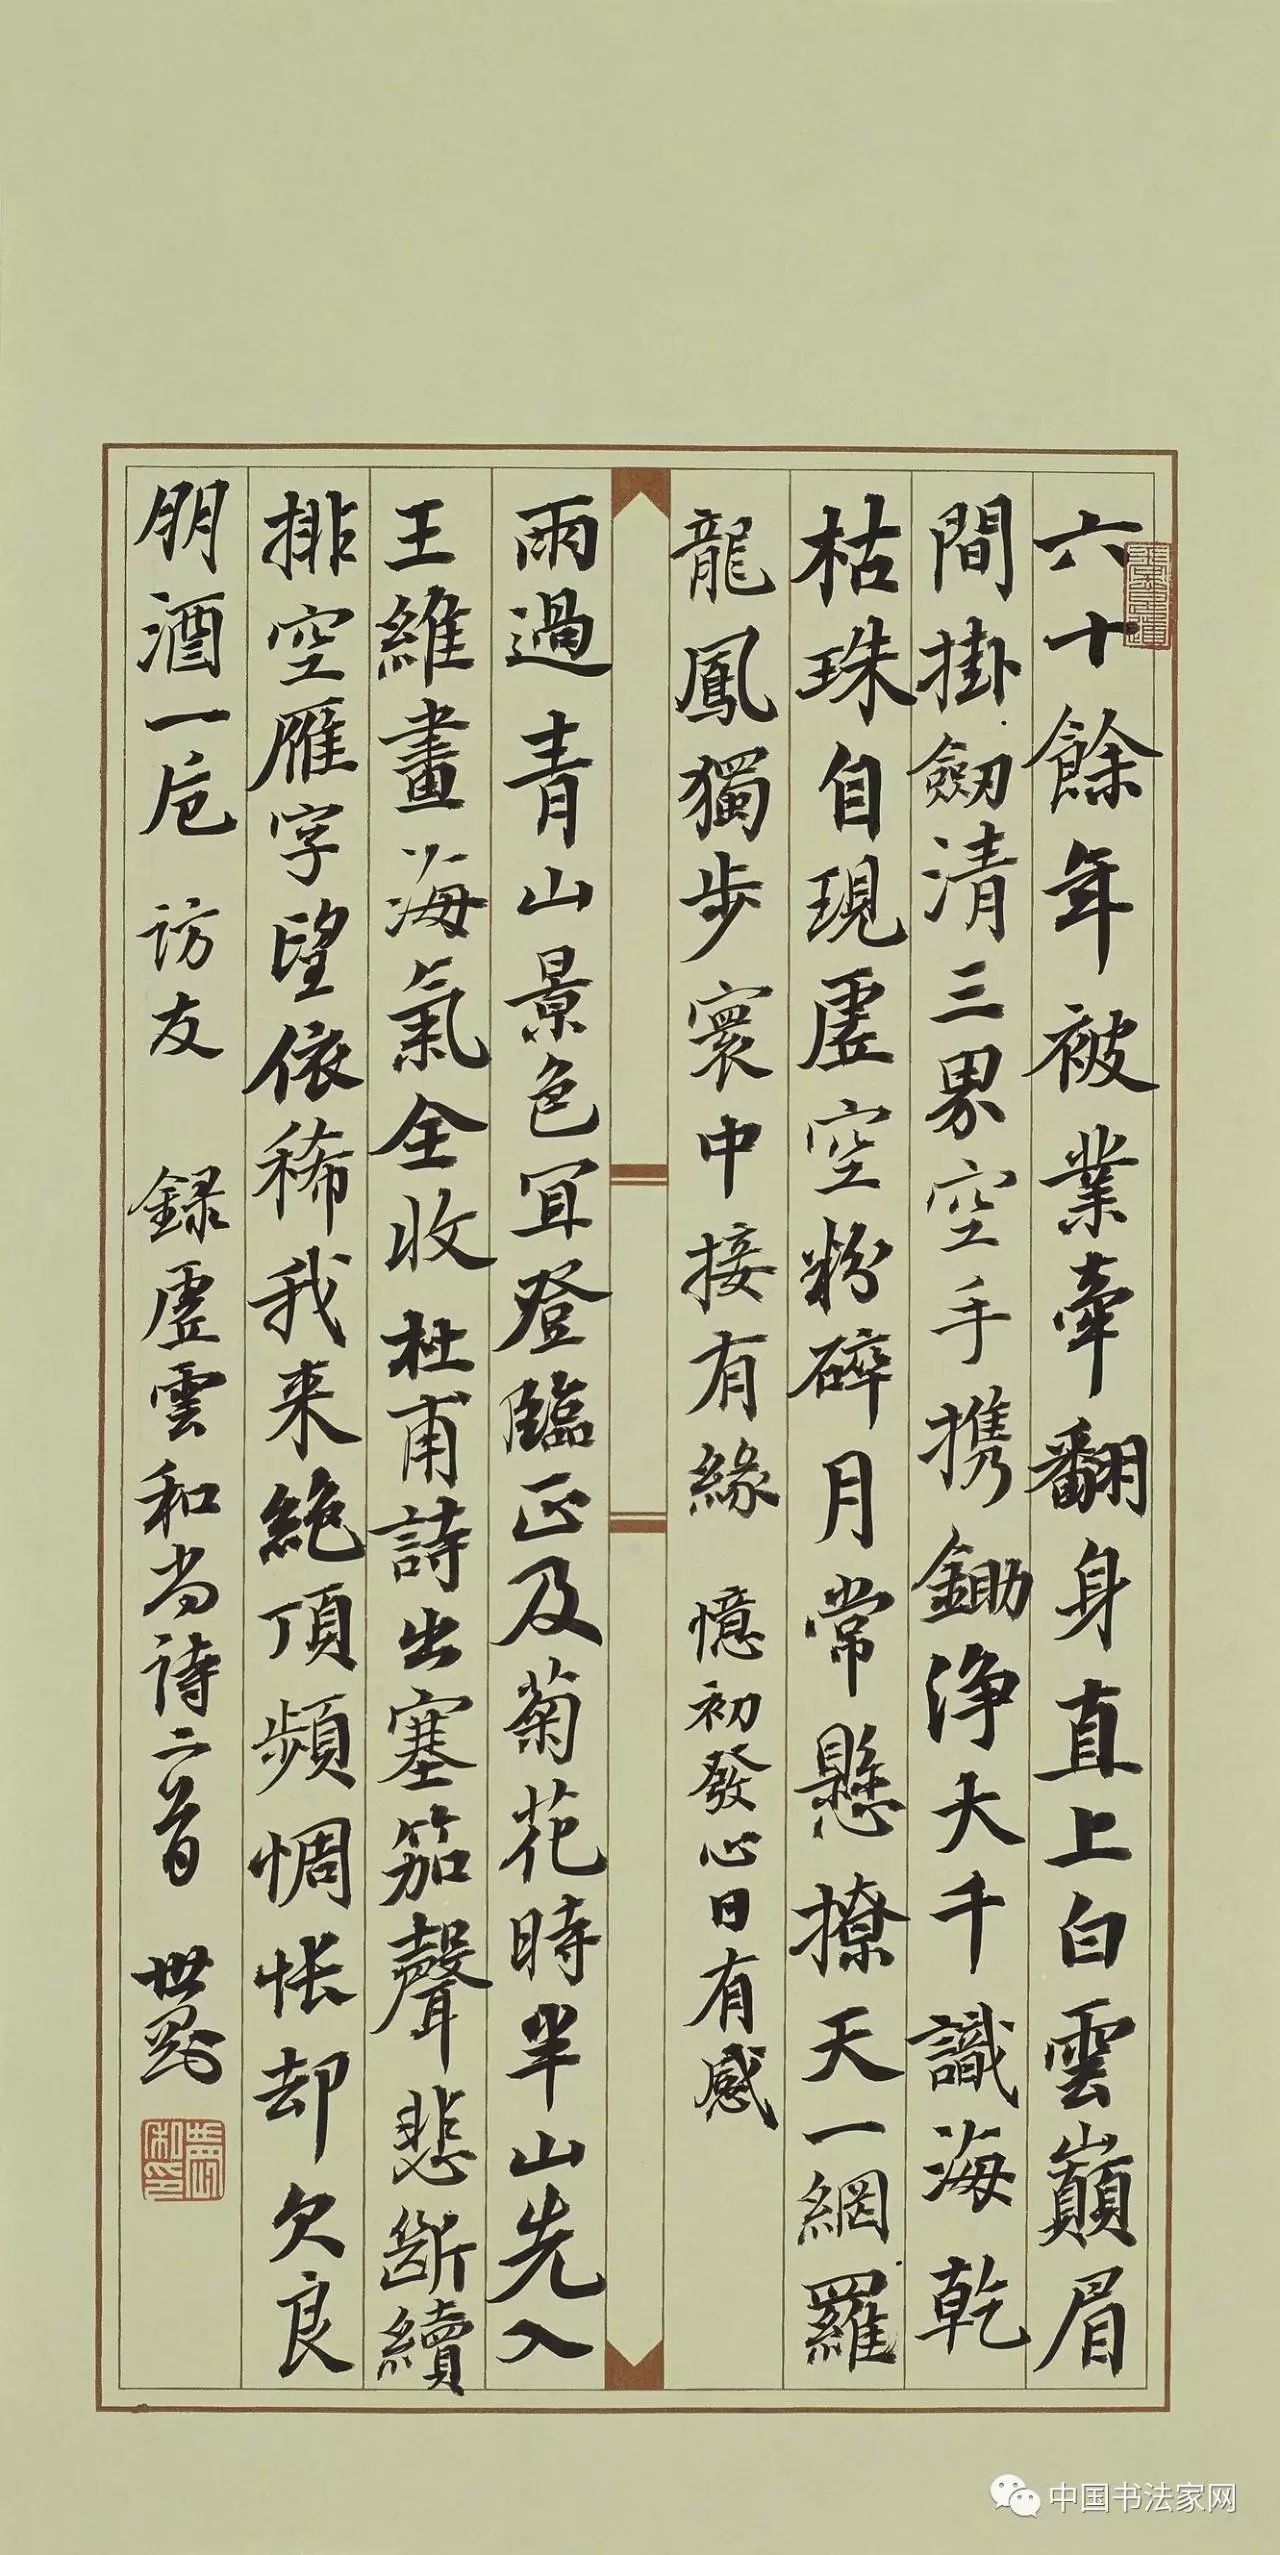 六十餘年被業牽翻身直上白雲巔眉
間掛劒清三界空手携鋤浄大千識海乾
枯珠自現虛空粉碎月常懸撩天一網羅
龍鳳獨步寰中接有緣 憶初發心日有感
雨過青山景色冝登臨正及菊花時半山先入
王維畫海氣全收杜甫詩出塞笳聲悲斷續
排空雁字望依稀我来絶頂頻惆悵却欠良
朋酒一卮 访友 録虛雲和尚诗二首 世剛
中国书法家网